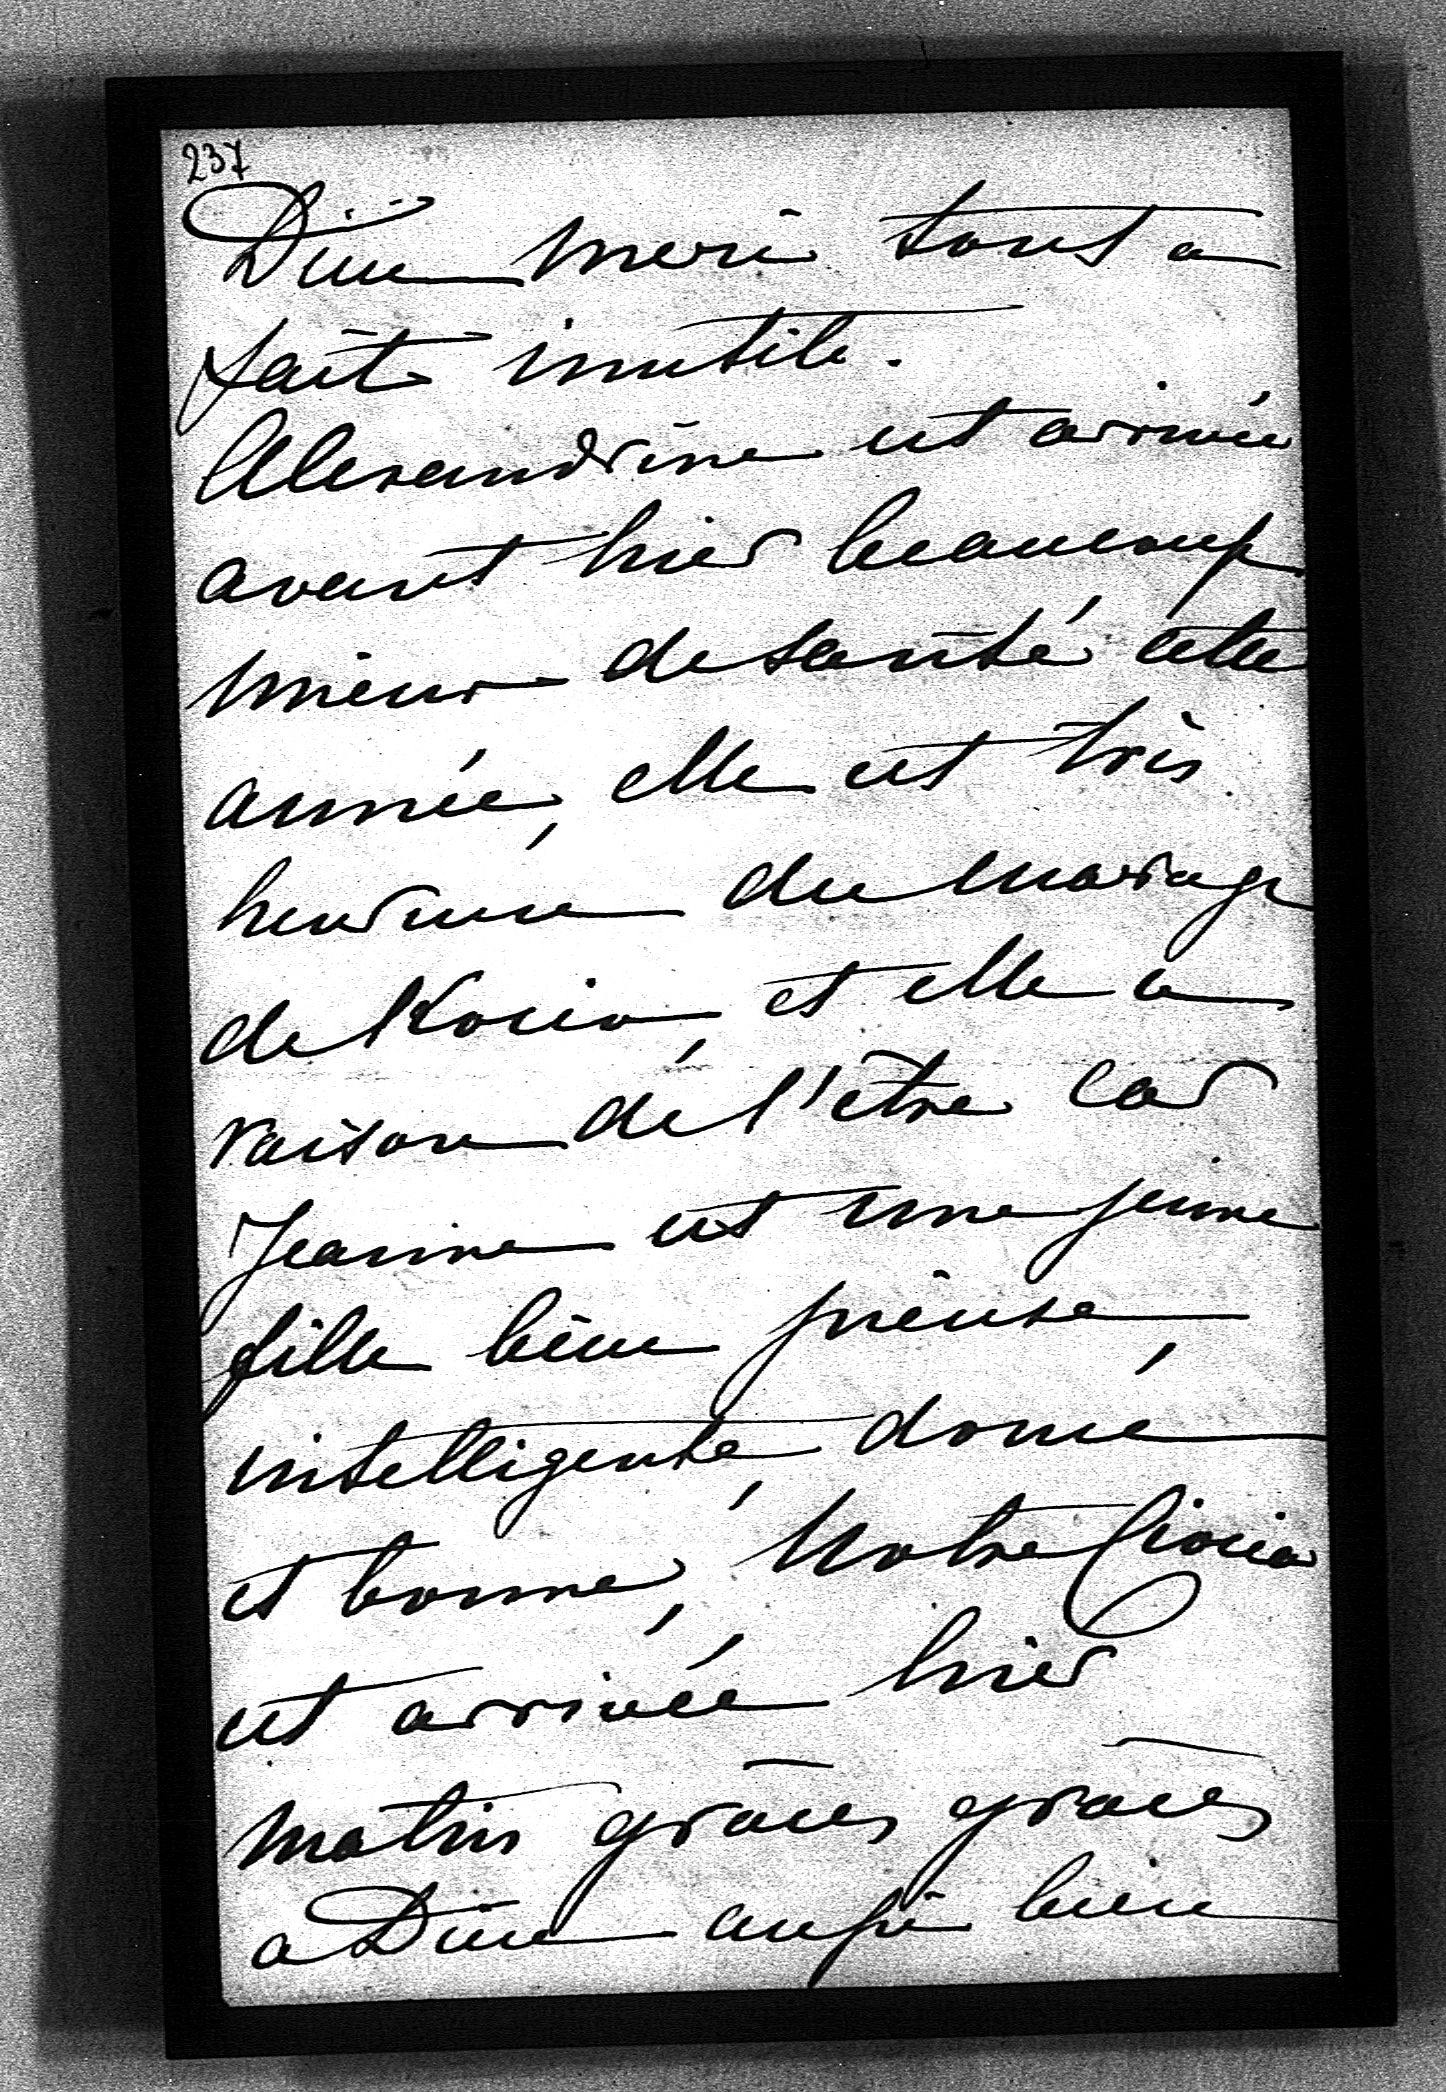 237
Dieu merci tout a
fait inutile.
Alexandrine est arrivée
avant hier beaucoup
mieux de santé cette
année, elle est très
heureuse du mariage
de Kocio, et elle a
raison de l'être car
Jeanne est une jeune
fille bien pieuse,
intelligente, douce
et bonne, Notre Ciocia
est arrivée hier
matin grâces grâces
a Dieu aussi bien